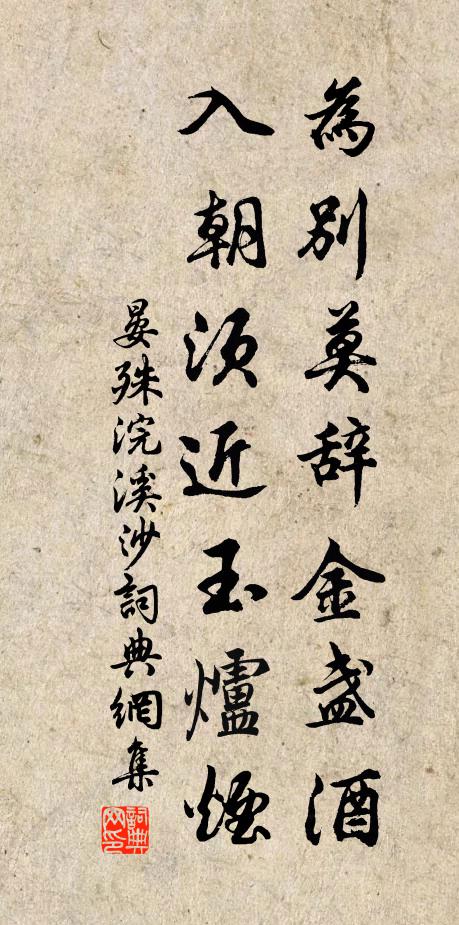 為別莫辞金盞酒
入朝須近玉爐煙
晏殊浣溪沙詞典網集
詞典
网印